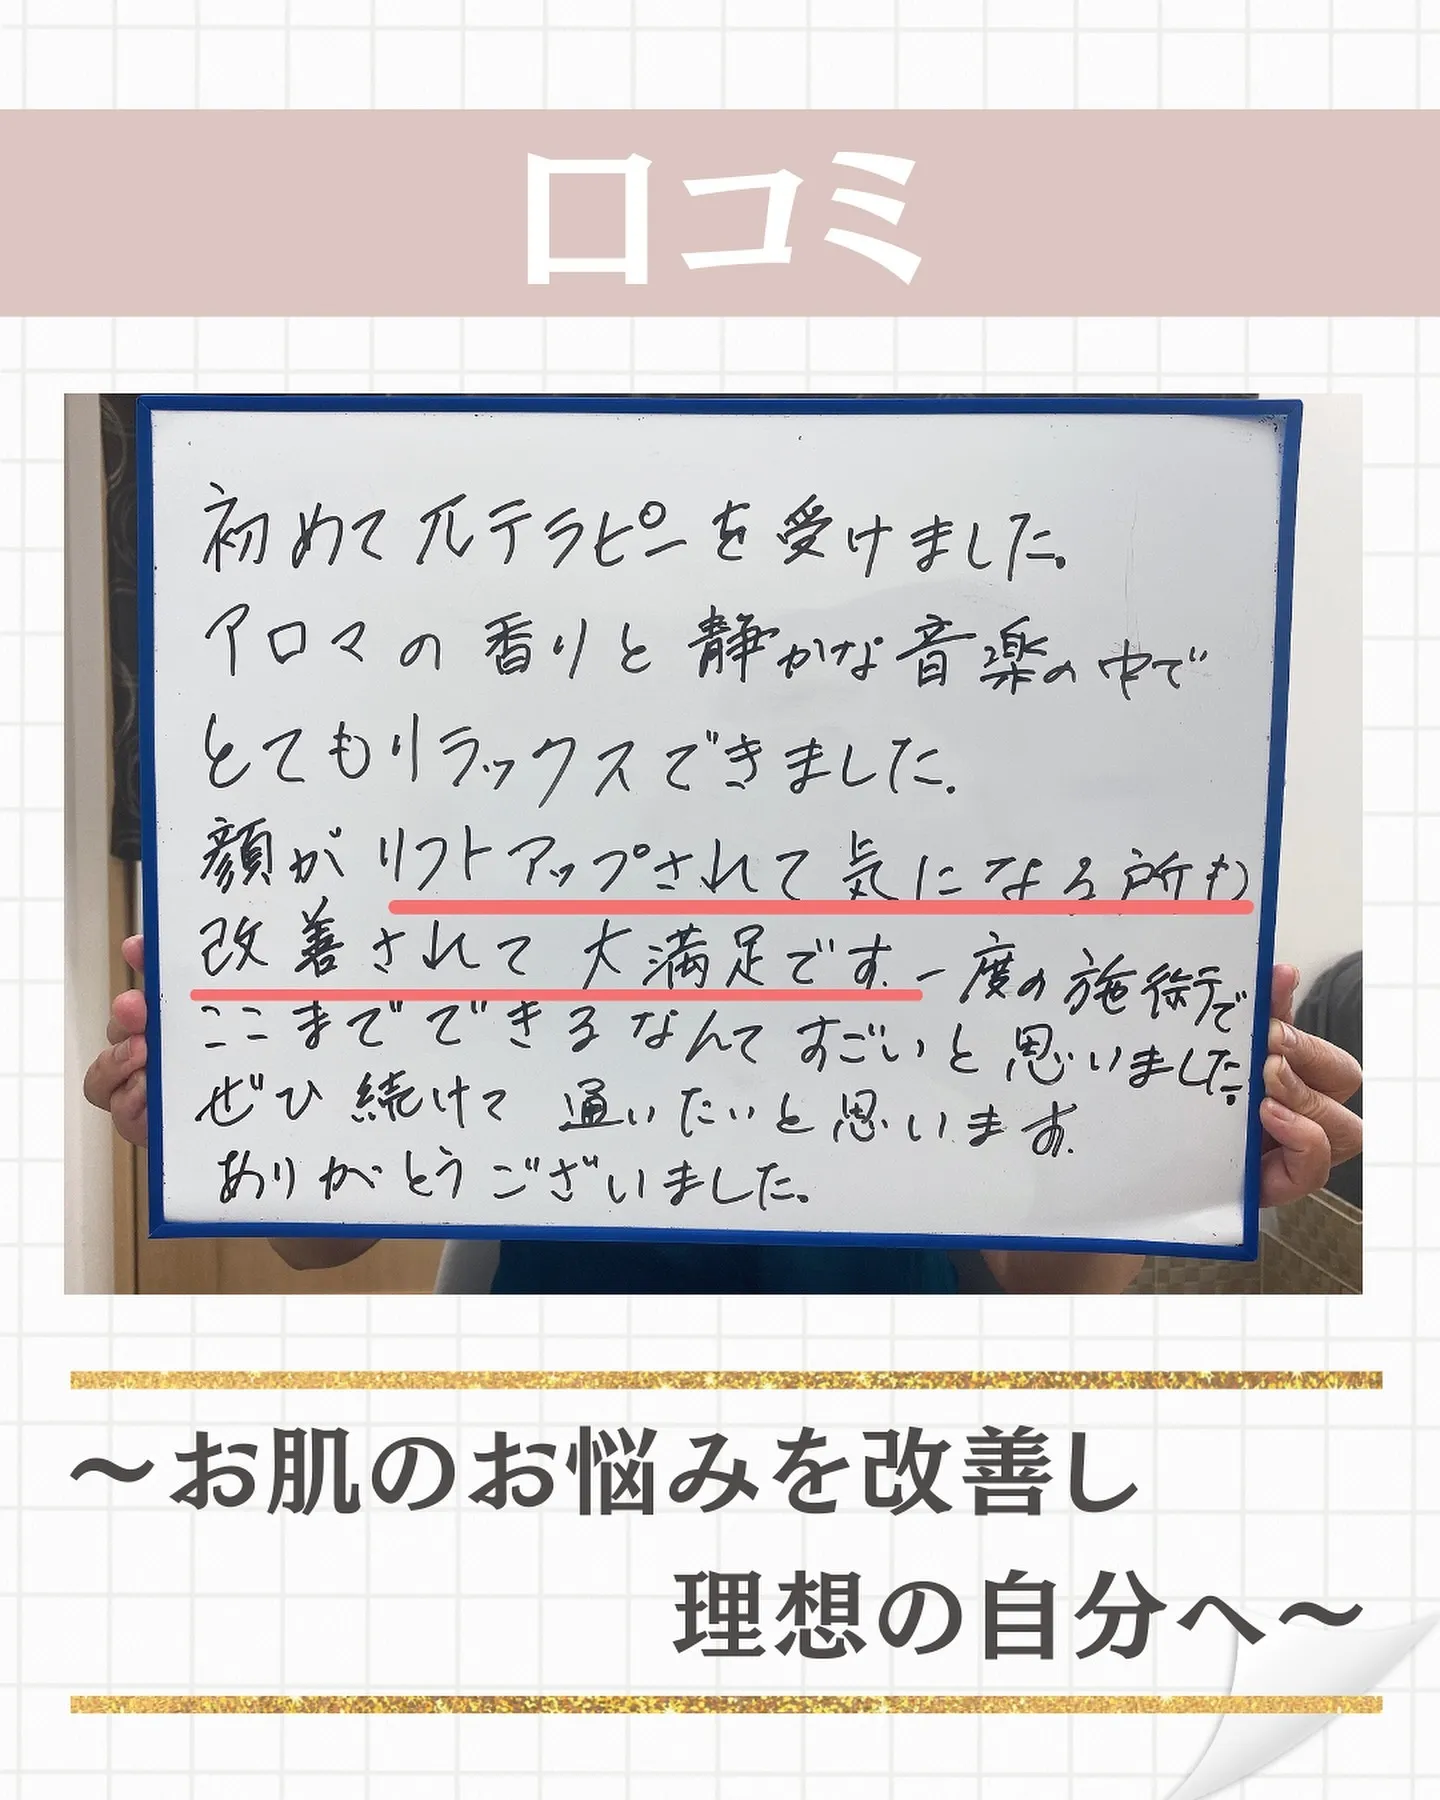 口コミ
初めて兀テラピーを受けました。
アロマの香りと静かな音楽の中で
とてもリラックスできました。
顔がリフトアップされて気になる所も
改善されて大満足です。一度の施術で
ここまでできるなんてすごいと思いました。
ぜひ続けて通いたいと思います。
ありがとうございました。
〜お肌のお悩みを改善し
理想の自分へ〜